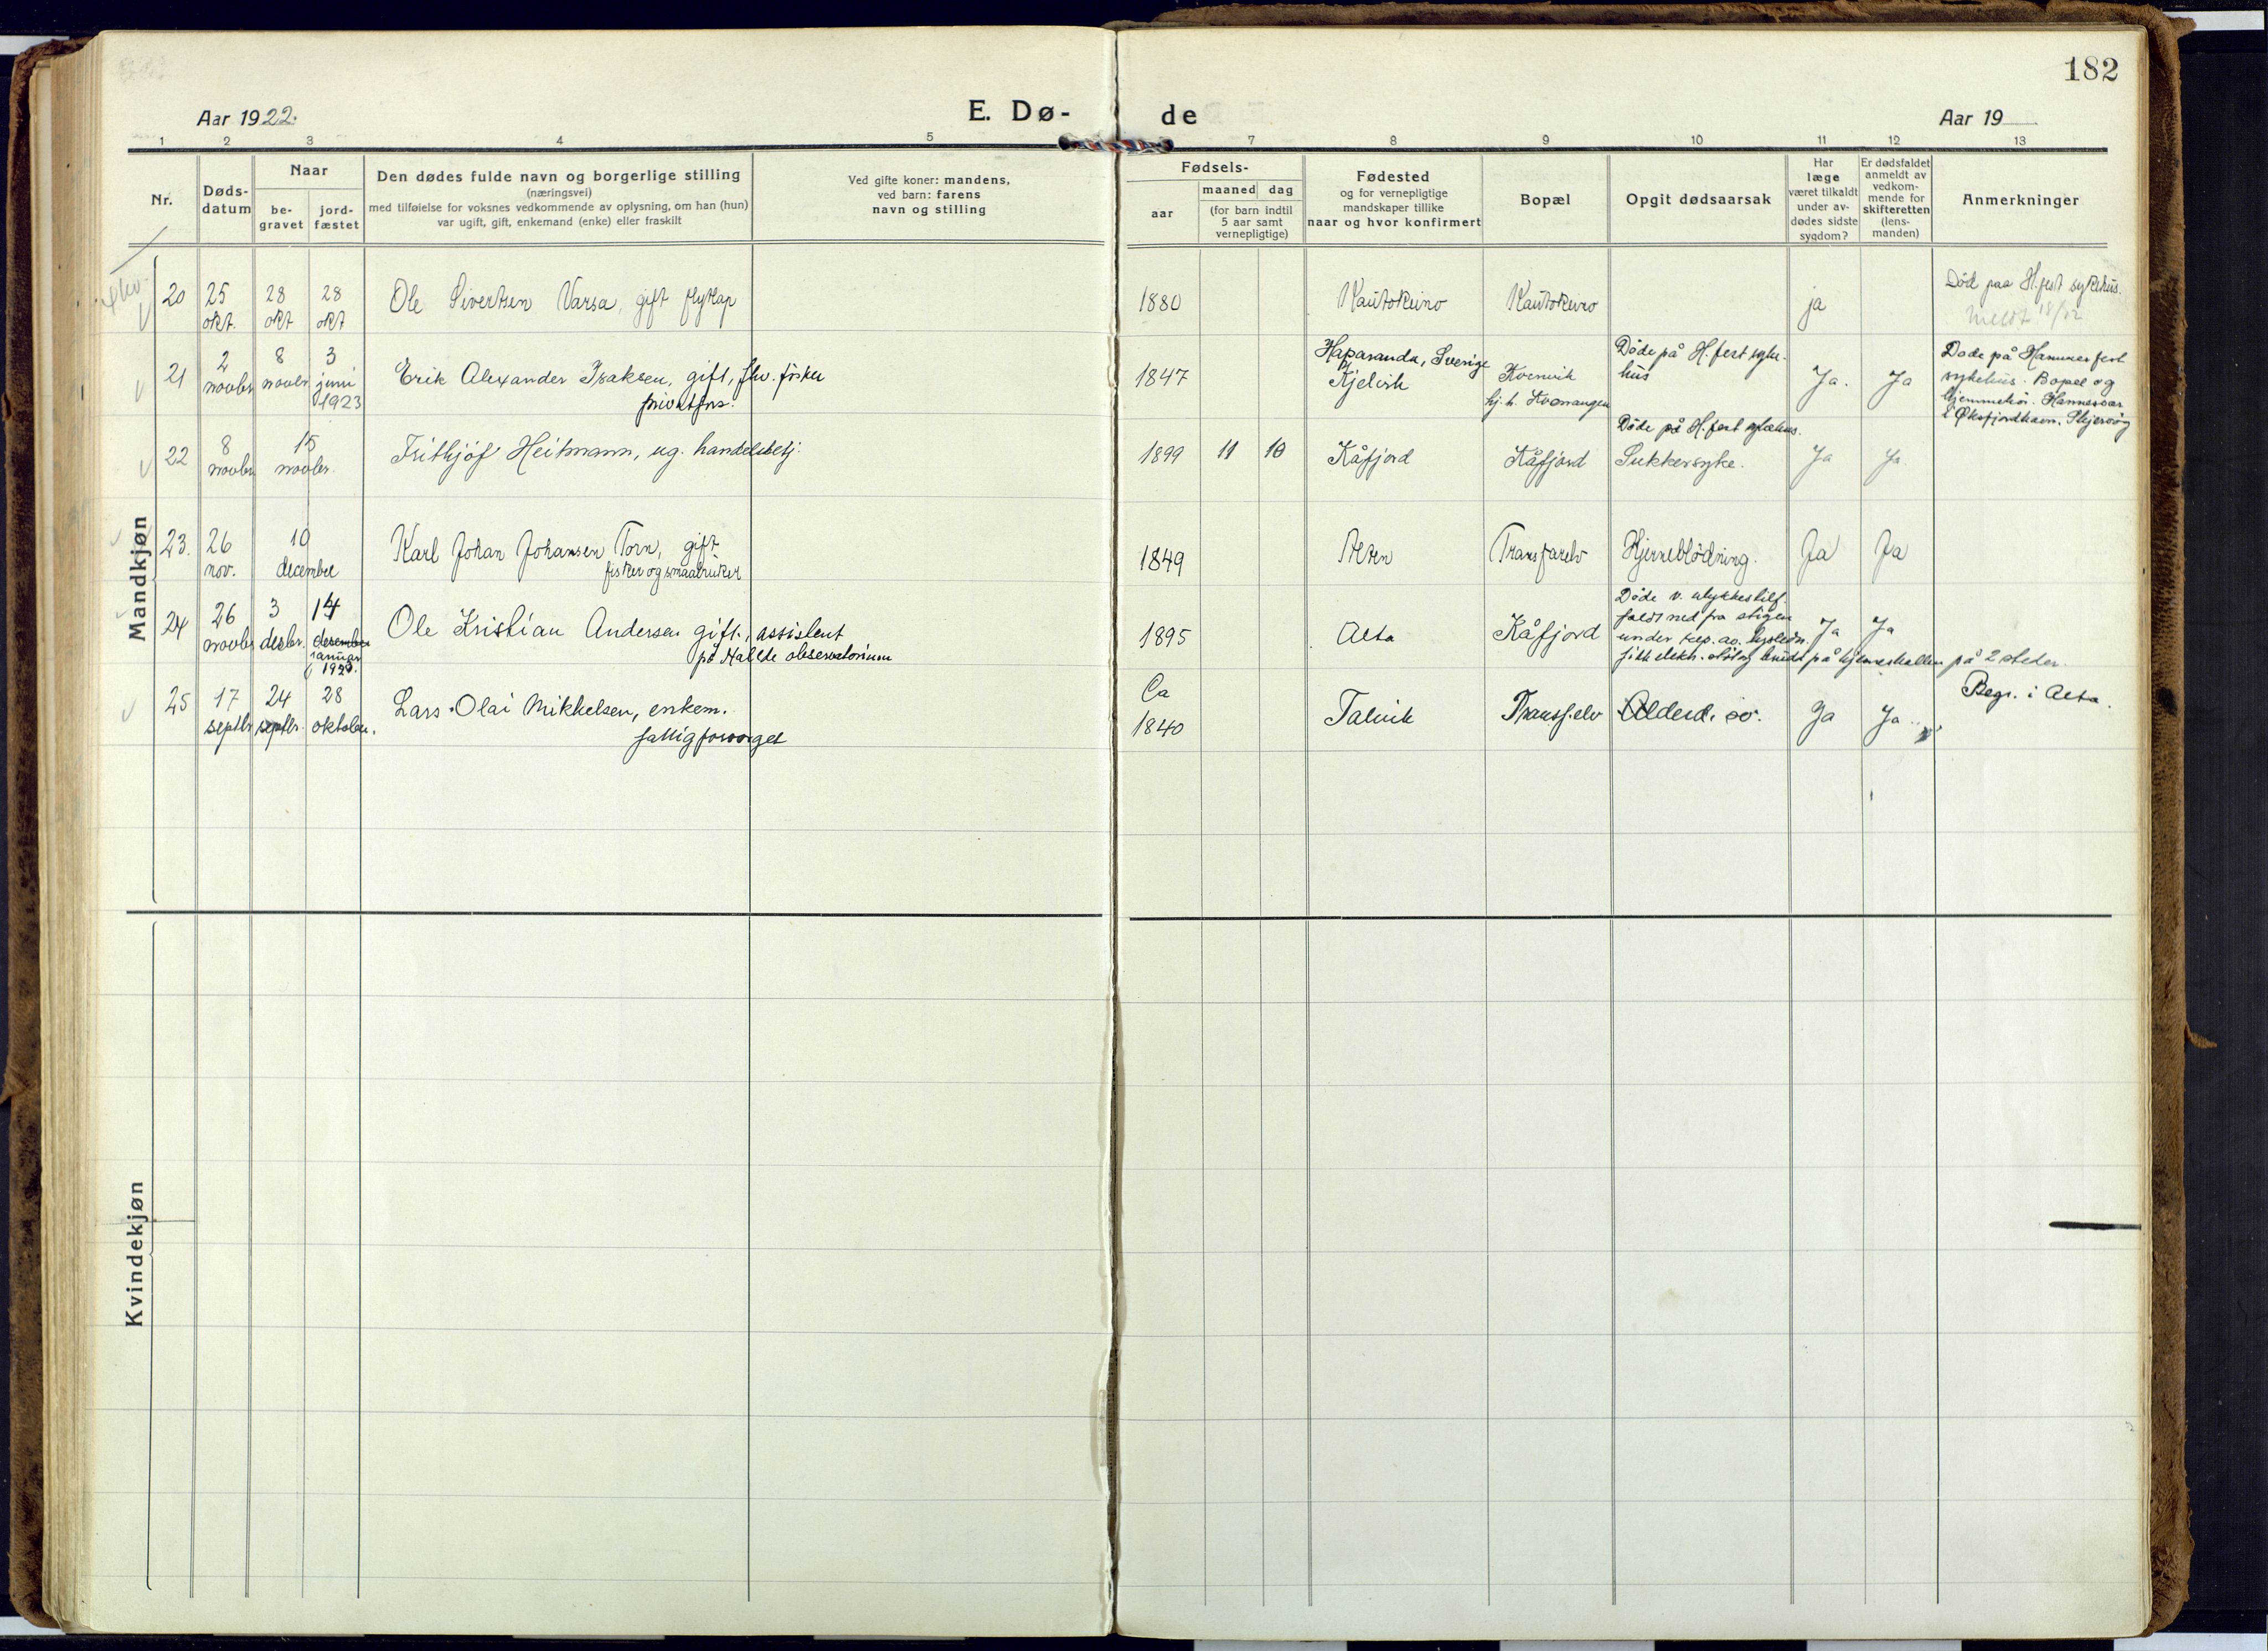 182
Aar 1922.
E. Dø-
de
Aar 19
1 2 3 4 5 7 8 9 10 11 12 13
Nr.
Døds-
datum
Naar
be-
gravet
jord-
fæstet
Den dødes fulde navn og borgerlige stilling
(næringsvei)
med tilføielse for voksnes vedkommende av oplysning, om han (hun)
var ugift, gift, enkemand (enke) eller fraskilt
Ved gifte koner: mandens,
ved barn: farens
navn og stilling
Fødsels-
aar
maaned dag
(for barn indtil
5 aar samt
vernepligtige)
Fødested
og for vernepligtige
mandskaper tillike
naar og hvor konfirmert
Bopæl
Opgit dødsaarsak
Har
læge
været tilkaldt
under av-
dødes sidste
sygdom?
Er dødsfaldet
anmeldt av
vedkom-
mende for
skifteretten
(lens-
manden)
Anmerkninger
Mandkjøn
20
25
okt.
28
okt
28
okt
Ole Sivertsen Varsa, gift flytlap
1880
Kautokeino
Kautokeino
ja
Död paa H.fest sykehus.
21
2
novbr
8
novbr.
3
juni
1923
Erik Alexander Isaksen, gift, fhv. fisker
1847
Haparanda, Sverige
Kjelvik
Kvenvik
Döde på H. fest syke-
hus
Ja.
Ja
Døde på Hammerfest
sykehus. Bopæl og
i Øksfjordhavn. Skjervöy
22
8
novbr
15
novbr.
Frithjof Heitmann, ug. handelsbetj.
1899
11
10
Kåfjord
Kåfjord
Döde på H. fest sykehus.
Sukkersyke.
Ja
Ja.
23.
26
nov.
10
december
Karl Johan Johansen Torn, gift
fisker og smaabruker
1849
Alten
Transfarelv
Hjerneblödning.
Ja
Ja
24
26
novbr
3
desbr.
14
desember
januar
1923.
Ole Kristian Andersen gift., assistent
på Haldde observatorium
1895
Alta
Kåfjord
Döde v. ulykkestilf.
faldt ned fra stigen
under rep. av lysledn.
fikk elektr. stöt og brudd på hjerneskallen på 2 steder.
Ja
Ja
25
17
septbr
24
septbr.
28
oktober.
Lars Olai Mikkelsen, enkem.
fattigforsorget
Ca
1840
Talvik
Transf.elv
Alderd. sv.
Ja
Ja
Begr. i Alta.
Kvindekjøn